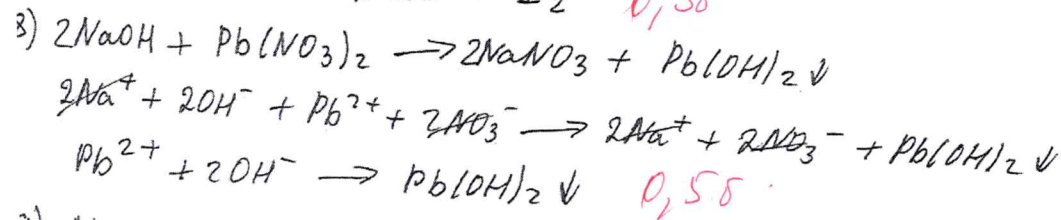 3) 2NaOH + Pb(NO3)2 → 2NaNO3 + Pb(OH)2↓
2Na⁺ + 2OH⁻ + Pb²⁺ + 2NO3⁻ → 2Na⁺ + 2NO3⁻ + Pb(OH)2↓
Pb²⁺ + 2OH⁻ → Pb(OH)2↓ 0,5б